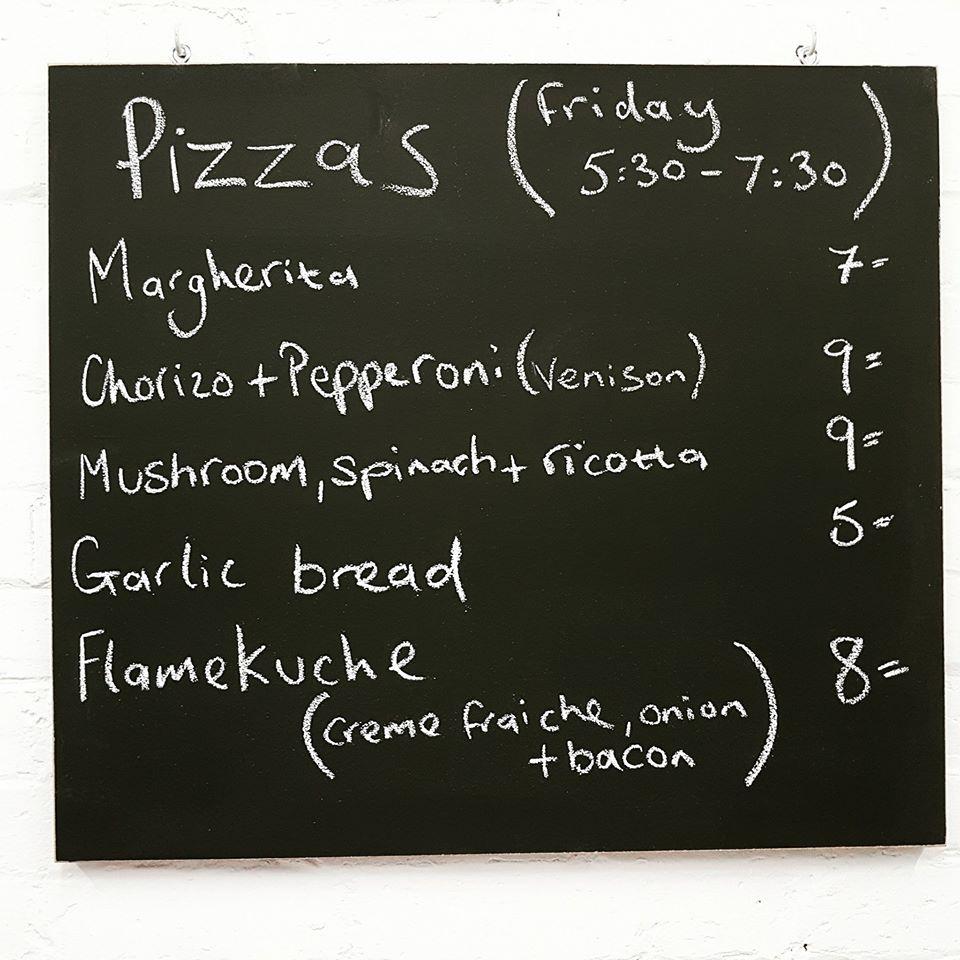 Pizzas (Friday
5:30-7:30)
Margherita 7=
Chorizo + Pepperoni (Venison) 9=
Mushroom, spinach + ricotta 9=
Garlic bread 5=
Flamekuche 8=
(creme fraiche, onion
+ bacon)